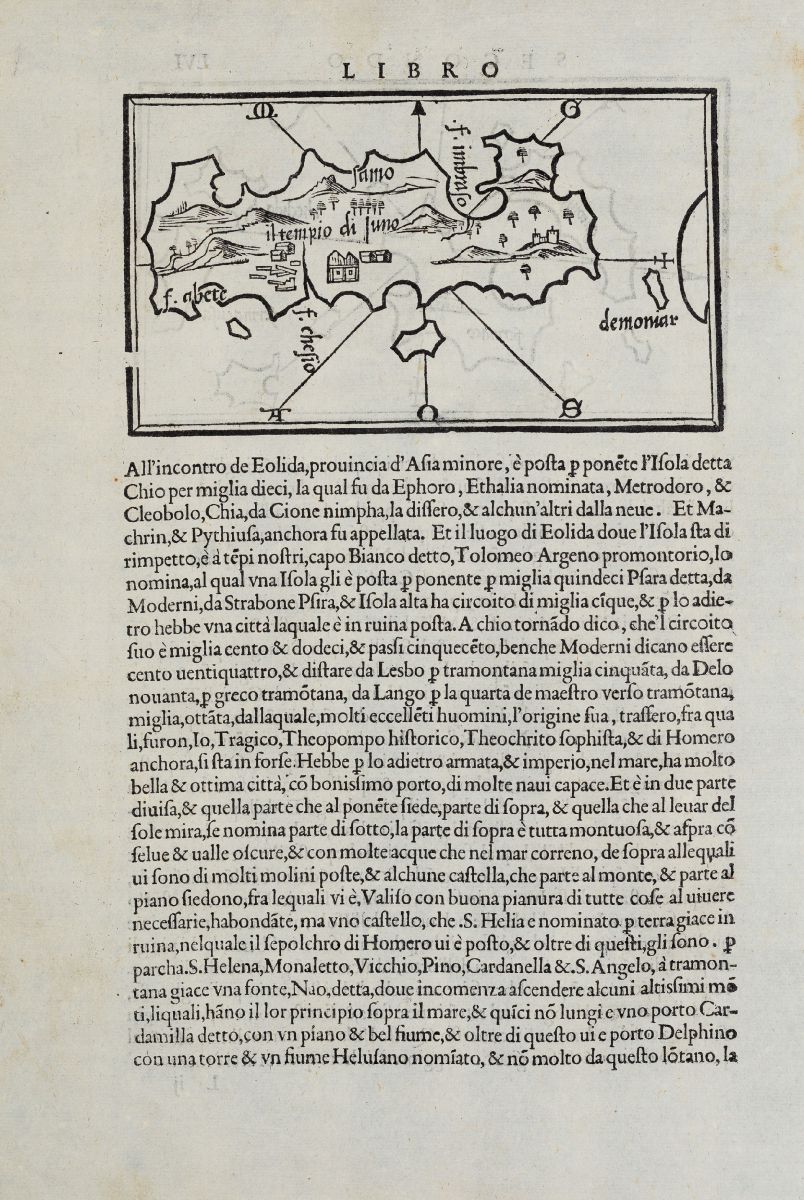 LIBRO
M
G
f. imbraso
samo
il tempio di Juno
f. abete
f. chesio
demoniar
A
O
S
All'incontro de Eolida,prouincia d'Asia minore, è posta ꝑ ponẽte l'Isola detta
Chio per miglia dieci, la qual fu da Ephoro, Ethalia nominata, Metrodoro, &
Cleobolo,Chia,da Cione nimpha,la dissero,& alchun'altri dalla neue. Et Ma-
chrin,& Pythiusa,anchora fu appellata. Et il luogo di Eolida doue l'Isola sta di
rimpetto,è à tẽpi nostri,capo Bianco detto,Tolomeo Argeno promontorio,lo
nomina,al qual vna Isola gli è posta ꝑ ponente ꝑ miglia quindeci Psara detta,da
Moderni,da Strabone Psira,& Isola alta ha circoito di miglia cĩque,& ꝑ lo adie-
tro hebbe vna città laquale è in ruina posta. A chio tornãdo dico, che'l circoito
suo è miglia cento & dodeci,& passi cinquecẽto,benche Moderni dicano essere
cento uentiquattro,& distare da Lesbo ꝑ tramontana miglia cinquãta, da Delo
nouanta,ꝑ greco tramõtana, da Lango ꝑ la quarta de maestro verso tramõtana,
miglia,ottãta,dallaquale,molti eccellẽti huomini,l'origine sua, trassero,fra qua
li,furon,Io,Tragico,Theopompo historico,Theochrito sophista,& di Homero
anchora,si sta in forse.Hebbe ꝑ lo adietro armata,& imperio,nel mare,ha molto
bella & ottima città, cõ bonissimo porto,di molte naui capace.Et è in due parte
diuisa,& quella parte che al ponẽte siede,parte di sopra, & quella che al leuar del
sole mira,se nomina parte di sotto,la parte di sopra è tutta montuosa,& aspra cõ
selue & ualle oscure,& con molte acque che nel mar correno, de sopra allequali
ui sono di molti molini poste,& alchune castella,che parte al monte, & parte al
piano siedono,fra lequali vi è,Valiso con buona pianura di tutte cose al uiuere
necessarie,habondãte, ma vno castello, che .S. Helia e nominato ꝑ terra giace in
ruina,nelquale il sepolchro di Homero ui è posto,& oltre di questi,gli sono . ꝑ
parcha.S.Helena,Monaletto,Vicchio,Pino,Cardanella &.S.Angelo,à tramon-
tana giace vna fonte,Nao,detta,doue incomenza ascendere alcuni altissimi mõ
ti,liquali,hãno il lor principio sopra il mare,& quĩci nõ lungi e vno porto Car-
damilla detto,con vn piano & bel fiume,& oltre di questo ui e porto Delphino
con una torre & vn fiume Helusano nomĩato, & nõ molto da questo lõtano, la